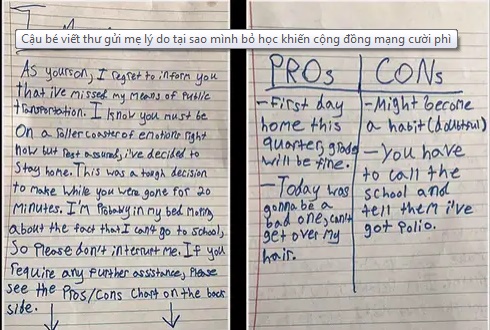 Cậu bé viết thư gửi mẹ lý do tại sao mình bỏ học khiến cộng đồng mạng cười phì
As yourson, I regret to inform you
that i've missed my means of Public
Transportation. I know you must be
On a rollercoaster of emotions right
now but Rest assured, i've decided to
Stay home. This was a tough decision
to make while you were gone for 20
minutes. I'm Probably in my bed moping
about the fact that I can't go to school,
So Please don't interrupt me. If you
require any further assistance, Please
see the Pros/Cons Chart on the back
side.
PROs
-First day
home this
quarter, grades
will be fine.
-Today was
gonna be a
bad one, can't
get over my
hair.
CONs
-Might become
a habit (doubtful)
-You have
to call the
school and
tell them i've
got Polio.